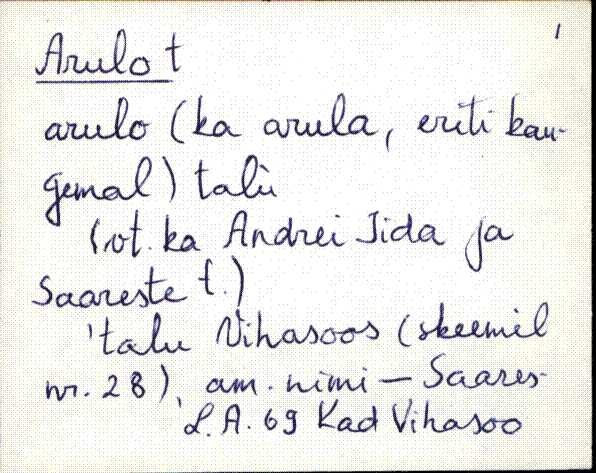 1
Arulo t
arulo (ka arula, eriti kau-
gemal) talù
(vt. ka Andrei Jida ja
Saareste t.)
'talu Vihasoos (skeemil
nr. 28), am. nimi – Saares-
L.A. 69 Kad Vihasoo